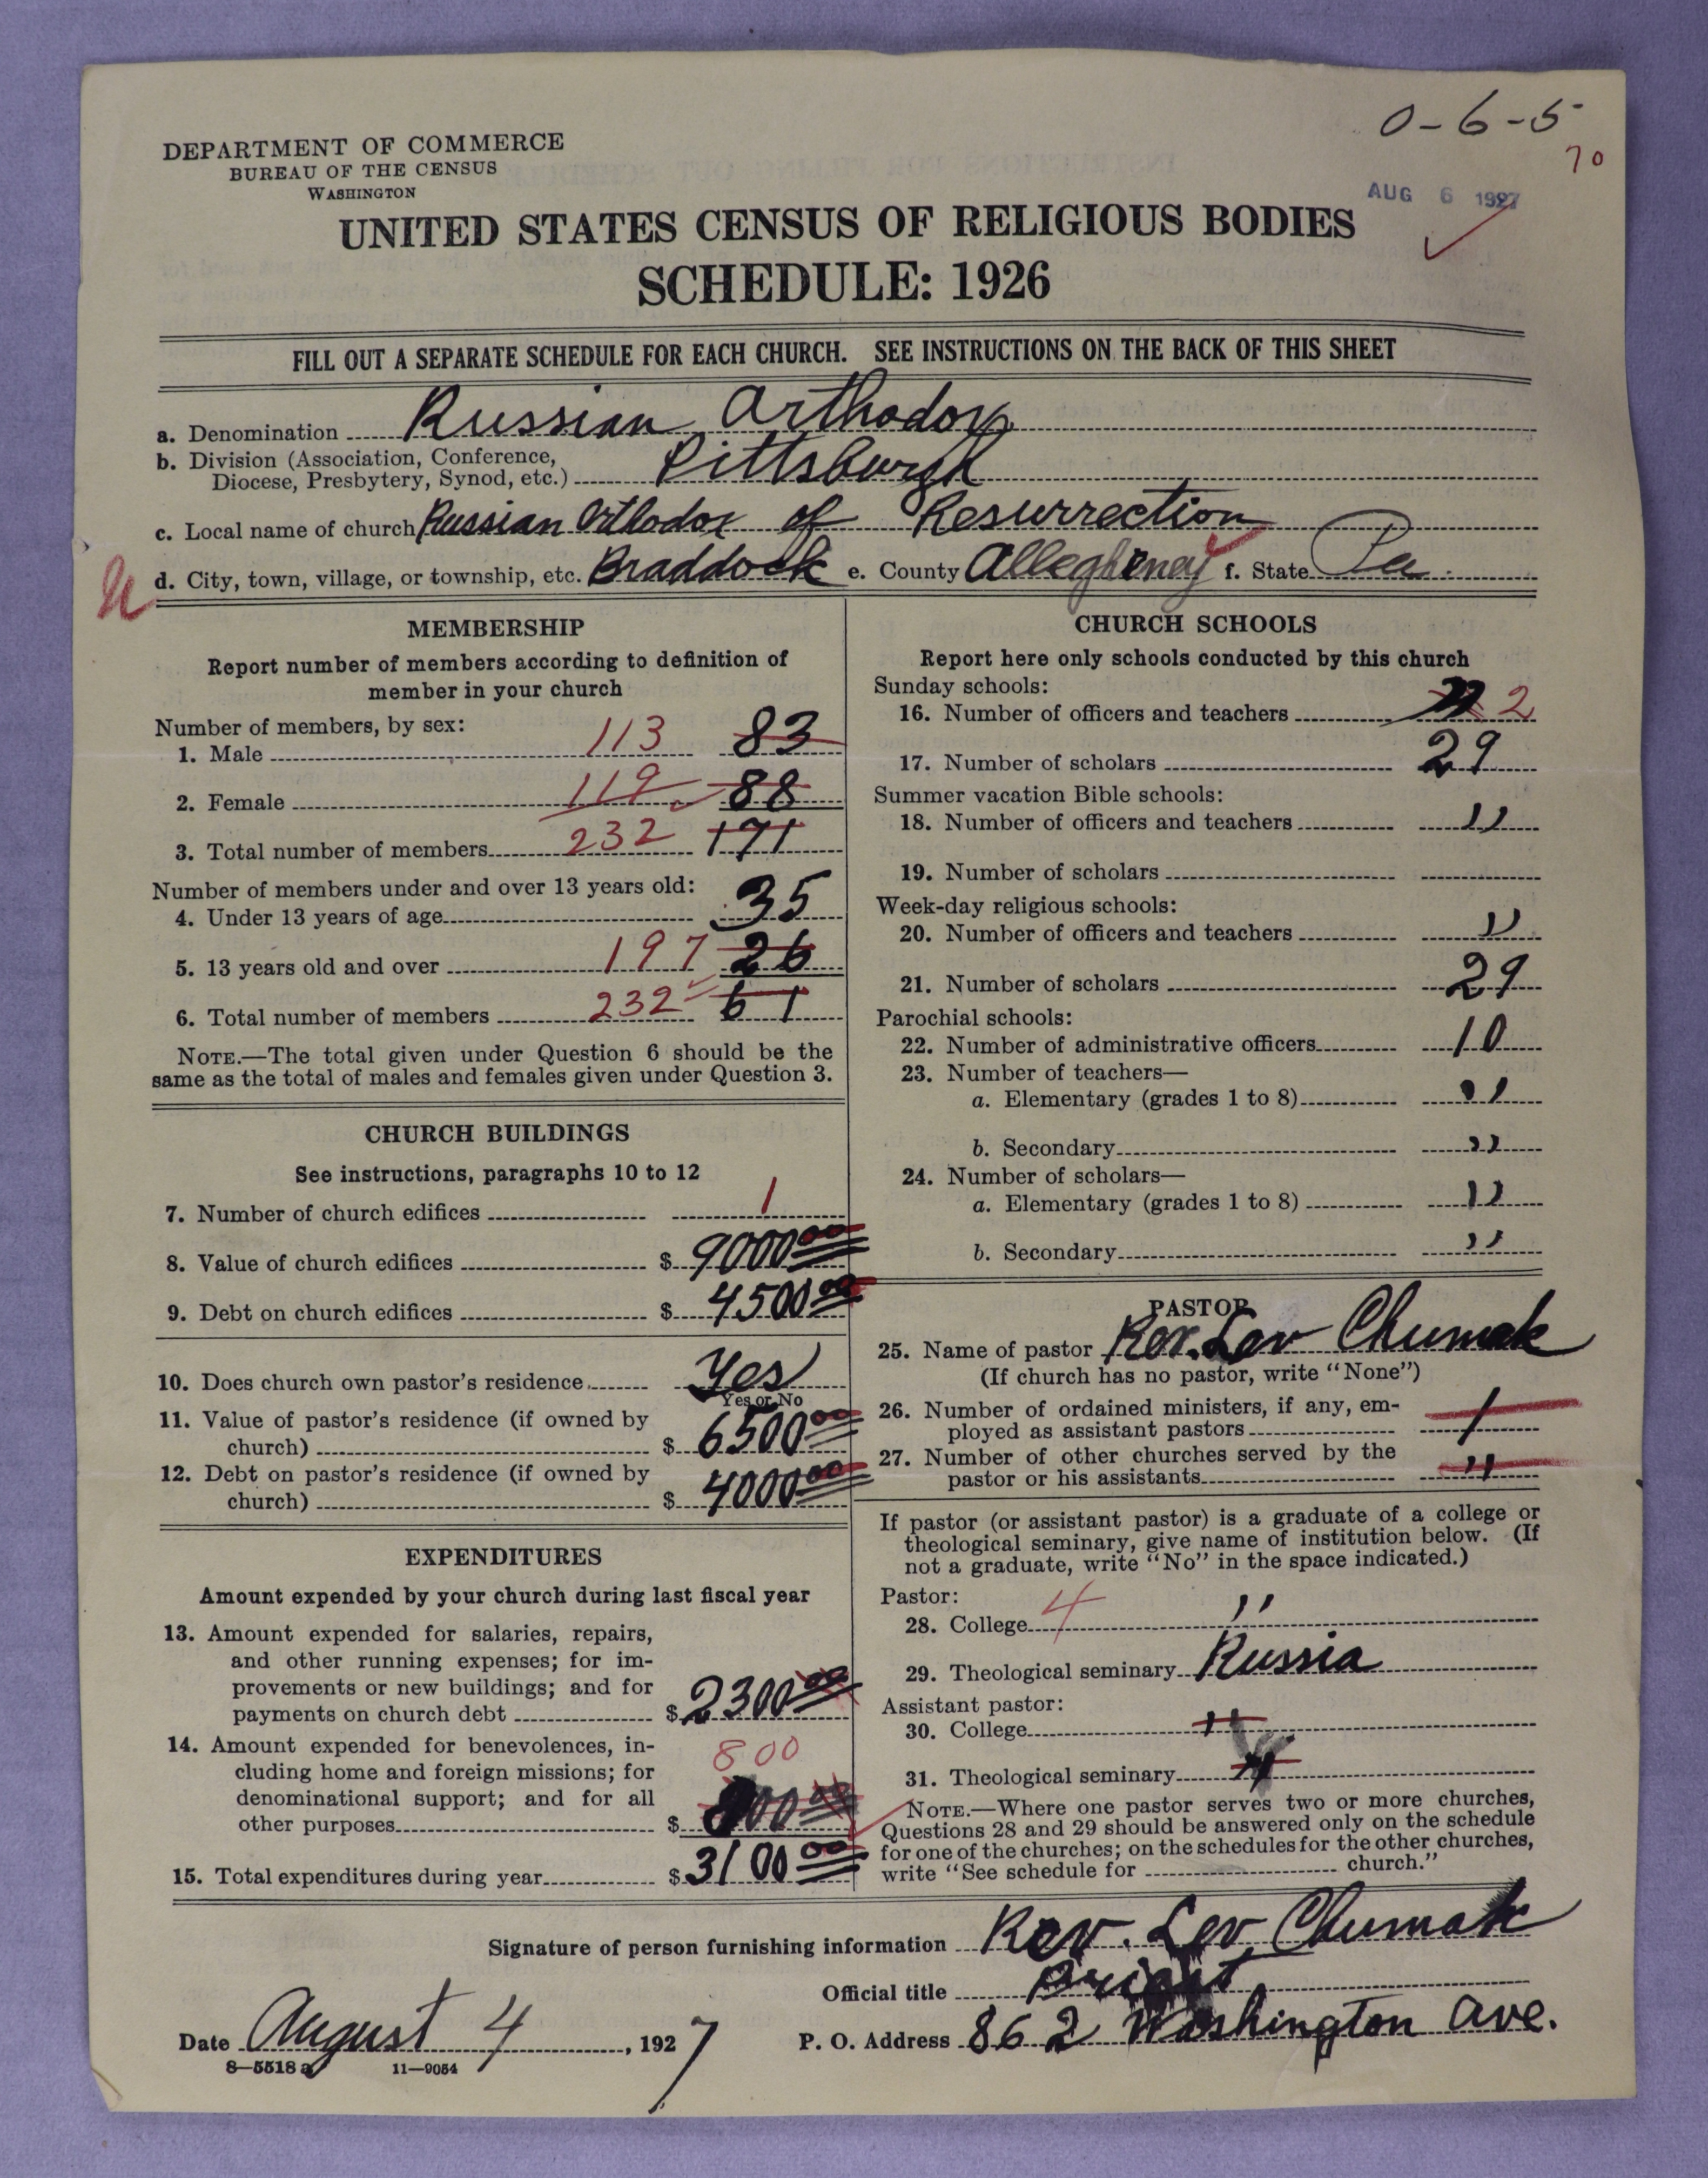 0-6-5
70
DEPARTMENT OF COMMERCE
BUREAU OF THE CENSUS
WASHINGTON
AUG 6 1927
UNITED STATES CENSUS OF RELIGIOUS BODIES
SCHEDULE: 1926
FILL OUT A SEPARATE SCHEDULE FOR EACH CHURCH. SEE INSTRUCTIONS ON THE BACK OF THIS SHEET
a. Denomination Russian Orthodox
b. Division (Association, Conference,
Diocese, Presbytery, Synod, etc.) Pittsburgh
c. Local name of church Russian Orthodox of Resurrection
d. City, town, village, or township, etc. Braddock e. County Allegheney f. State Pa.
MEMBERSHIP
Report number of members according to definition of
member in your church
Number of members, by sex:
1. Male 113 83
2. Female 119 88
3. Total number of members 232 171
Number of members under and over 13 years old:
4. Under 13 years of age 35
5. 13 years old and over 197 26
6. Total number of members 232 61
NOTE.—The total given under Question 6 should be the
same as the total of males and females given under Question 3.
CHURCH BUILDINGS
See instructions, paragraphs 10 to 12
7. Number of church edifices 1
8. Value of church edifices $ 9000 00
9. Debt on church edifices $ 4500 00
10. Does church own pastor's residence Yes
Yes or No
11. Value of pastor's residence (if owned by
church) $ 6500 00
12. Debt on pastor's residence (if owned by
church) $ 4000 00
EXPENDITURES
Amount expended by your church during last fiscal year
13. Amount expended for salaries, repairs,
and other running expenses; for im-
provements or new buildings; and for
payments on church debt $ 2300 00
14. Amount expended for benevolences, in-
cluding home and foreign missions; for
denominational support; and for all
other purposes $ 800 800 00
15. Total expenditures during year $ 3100 00
CHURCH SCHOOLS
Report here only schools conducted by this church
Sunday schools:
16. Number of officers and teachers 2
17. Number of scholars 29
Summer vacation Bible schools:
18. Number of officers and teachers "
19. Number of scholars
Week-day religious schools:
20. Number of officers and teachers "
21. Number of scholars 29
Parochial schools:
22. Number of administrative officers 10
23. Number of teachers—
a. Elementary (grades 1 to 8) "
b. Secondary "
24. Number of scholars—
a. Elementary (grades 1 to 8) "
b. Secondary "
PASTOR
25. Name of pastor Rev. Lev Chumak
(If church has no pastor, write "None")
26. Number of ordained ministers, if any, em-
ployed as assistant pastors 1
27. Number of other churches served by the
pastor or his assistants "
If pastor (or assistant pastor) is a graduate of a college or
theological seminary, give name of institution below. (If
not a graduate, write "No" in the space indicated.)
Pastor:
28. College 4 "
29. Theological seminary Russia
Assistant pastor:
30. College "
31. Theological seminary "
NOTE.—Where one pastor serves two or more churches,
Questions 28 and 29 should be answered only on the schedule
for one of the churches; on the schedules for the other churches,
write "See schedule for church."
Signature of person furnishing information Rev. Lev Chumak
Official title
Date August 4, 1927 P. O. Address 862 Washington Ave.
8—5518 a 11—9054